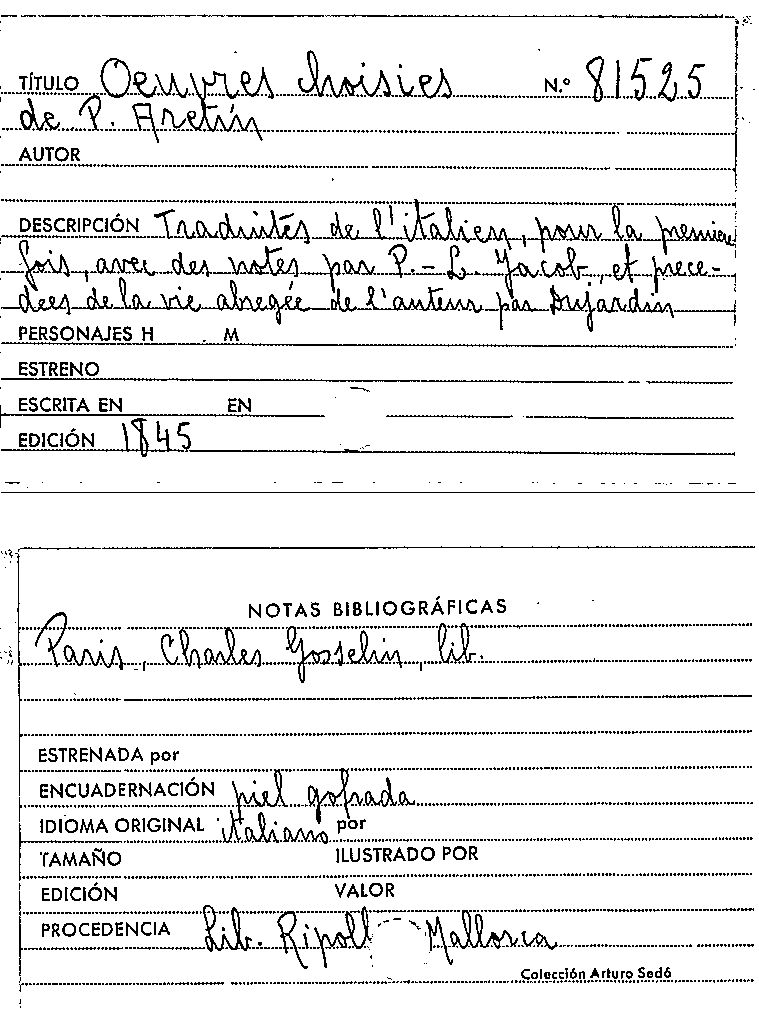 TÍTULO Oeuvres choisies N.º 81525
de P. Aretin
AUTOR
DESCRIPCIÓN Traduites de l'italien, pour la premiere
fois, avec des notes par P.-L. Jacob, et prece-
dees de la vie abregée de l'auteur par Dujardin
PERSONAJES H M
ESTRENO
ESCRITA EN EN
EDICIÓN 1845
NOTAS BIBLIOGRÁFICAS
Paris, Charles Gosselin, lib.
ESTRENADA por
ENCUADERNACIÓN piel gofrada
IDIOMA ORIGINAL italiano por
TAMAÑO ILUSTRADO POR
EDICIÓN VALOR
PROCEDENCIA Lib. Ripoll Mallorca
Colección Arturo Sedó